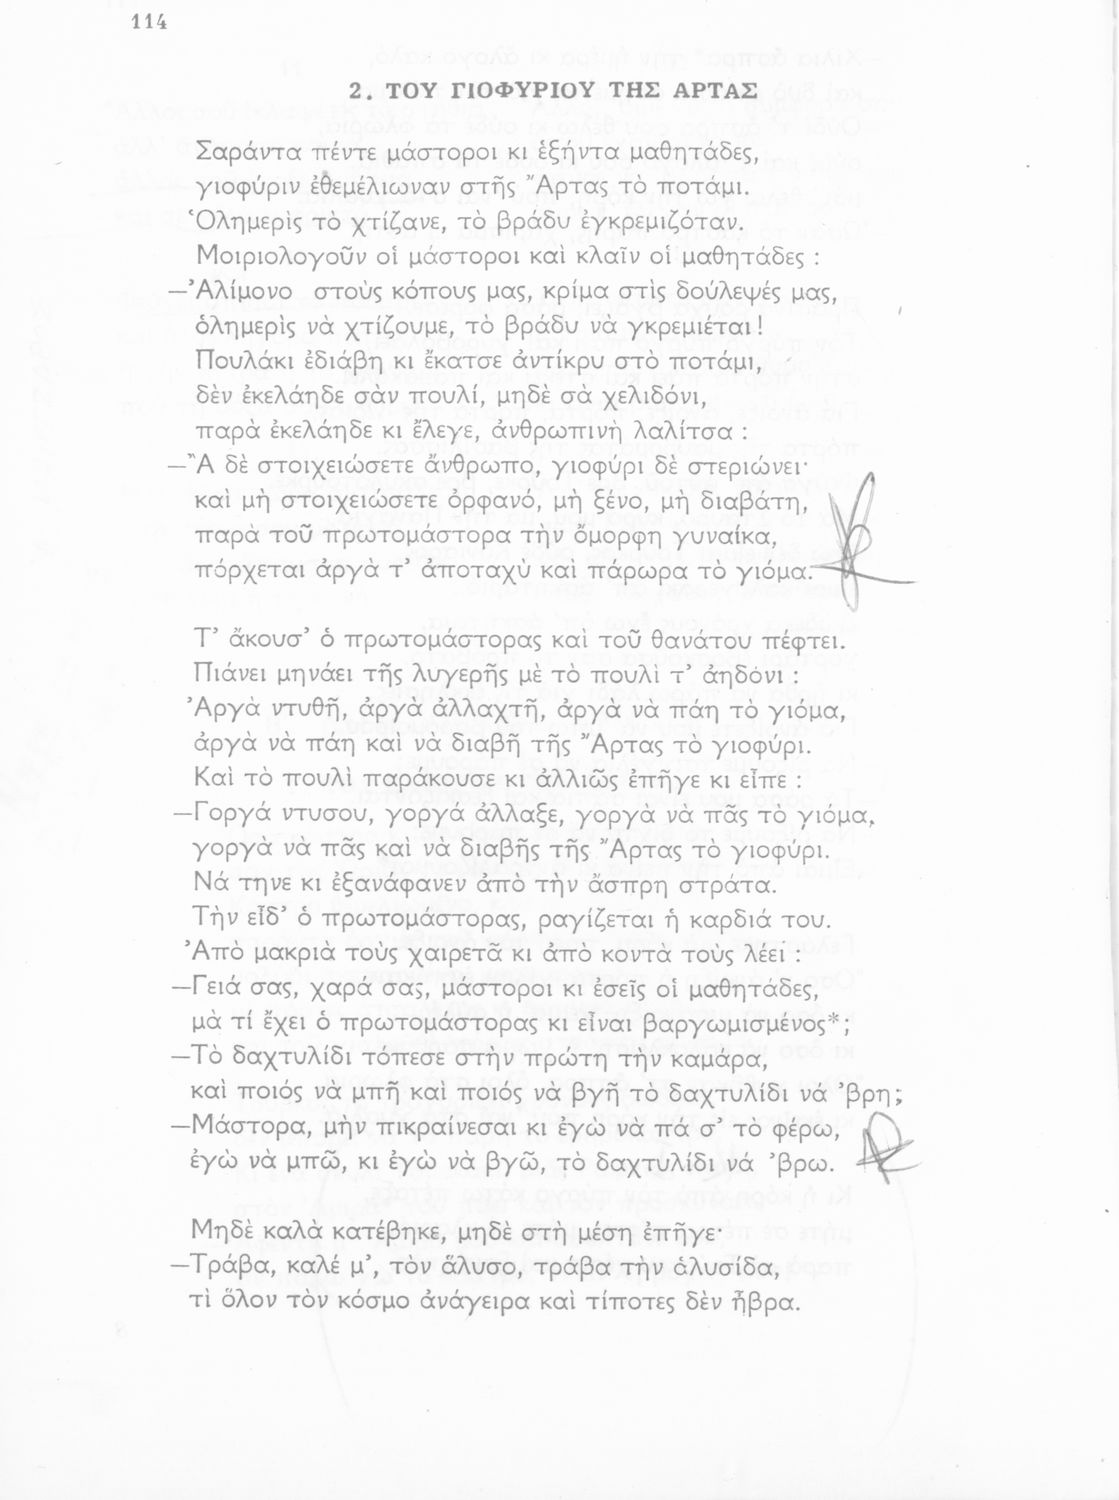 114
2. ΤΟΥ ΓΙΟΦΥΡΙΟΥ ΤΗΣ ΑΡΤΑΣ
Σαράντα πέντε μάστοροι κι ἑξήντα μαθητάδες,
γιοφύριν ἐθεμέλιωναν στῆς Ἄρτας τὸ ποτάμι.
Ὁλημερὶς τὸ χτίζανε, τὸ βράδυ ἐγκρεμιζόταν.
Μοιριολογοῦν οἱ μάστοροι καὶ κλαῖν οἱ μαθητάδες :
—Ἀλίμονο στοὺς κόπους μας, κρίμα στὶς δούλεψές μας,
ὁλημερὶς νὰ χτίζουμε, τὸ βράδυ νὰ γκρεμιέται!
Πουλάκι ἐδιάβη κι ἔκατσε ἀντίκρυ στὸ ποτάμι,
δὲν ἐκελάηδε σὰν πουλί, μηδὲ σὰ χελιδόνι,
παρὰ ἐκελάηδε κι ἔλεγε, ἀνθρωπινὴ λαλίτσα :
—Ἂ δὲ στοιχειώσετε ἄνθρωπο, γιοφύρι δὲ στεριώνει·
καὶ μὴ στοιχειώσετε ὀρφανό, μὴ ξένο, μὴ διαβάτη,
παρὰ τοῦ πρωτομάστορα τὴν ὄμορφη γυναίκα,
πόρχεται ἀργὰ τ' ἀποταχὺ καὶ πάρωρα τὸ γιόμα.

Τ' ἄκουσ' ὁ πρωτομάστορας καὶ τοῦ θανάτου πέφτει.
Πιάνει μηνάει τῆς λυγερῆς μὲ τὸ πουλὶ τ' ἀηδόνι :
Ἀργὰ ντυθῆ, ἀργὰ ἀλλαχτῆ, ἀργὰ νὰ πάη τὸ γιόμα,
ἀργὰ νὰ πάη καὶ νὰ διαβῆ τῆς Ἄρτας τὸ γιοφύρι.
Καὶ τὸ πουλὶ παράκουσε κι ἀλλιῶς ἐπῆγε κι εἶπε :
—Γοργά ντυσου, γοργά ἄλλαξε, γοργὰ νὰ πᾶς τὸ γιόμα,
γοργὰ νὰ πᾶς καὶ νὰ διαβῆς τῆς Ἄρτας τὸ γιοφύρι.
Νά τηνε κι ἐξανάφανεν ἀπὸ τὴν ἄσπρη στράτα.
Τὴν εἶδ' ὁ πρωτομάστορας, ραγίζεται ἡ καρδιά του.
Ἀπὸ μακριὰ τοὺς χαιρετᾶ κι ἀπὸ κοντὰ τοὺς λέει :
—Γειά σας, χαρά σας, μάστοροι κι ἐσεῖς οἱ μαθητάδες,
μὰ τί ἔχει ὁ πρωτομάστορας κι εἶναι βαργωμισμένος*;
—Τὸ δαχτυλίδι τόπεσε στὴν πρώτη τὴν καμάρα,
καὶ ποιός νὰ μπῆ καὶ ποιός νὰ βγῆ τὸ δαχτυλίδι νά 'βρη;
—Μάστορα, μὴν πικραίνεσαι κι ἐγὼ νὰ πά σ' τὸ φέρω,
ἐγὼ νὰ μπῶ, κι ἐγὼ νὰ βγῶ, τὸ δαχτυλίδι νά 'βρω.

Μηδὲ καλὰ κατέβηκε, μηδὲ στὴ μέση ἐπῆγε·
—Τράβα, καλέ μ', τὸν ἄλυσο, τράβα τὴν ἁλυσίδα,
τὶ ὅλον τὸν κόσμο ἀνάγειρα καὶ τίποτες δὲν ἦβρα.